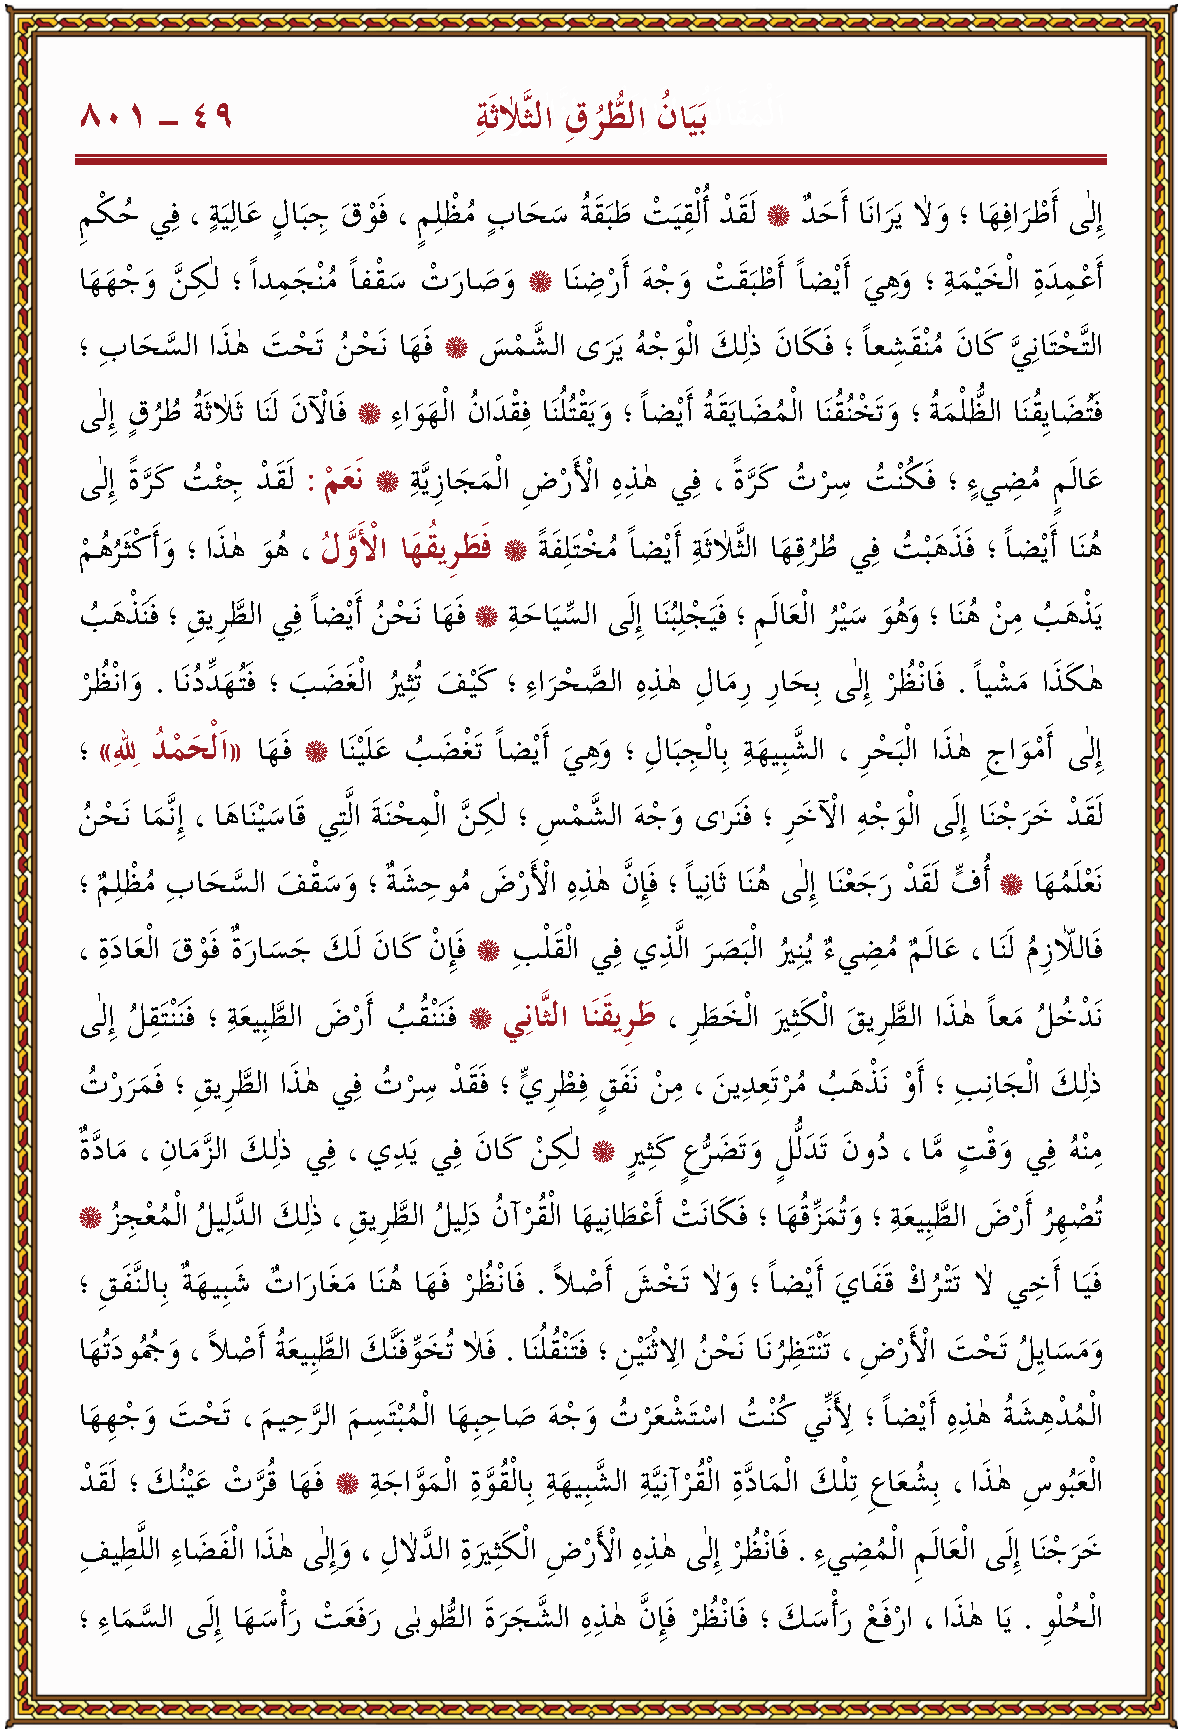 بَيَانُ الطُّرُقِ الثَّلاٰثَةِ ٤٩ – ٨٠١
إِلٰى أَطْرَافِهَا ؛ وَلاٰ يَرَانَا أَحَدٌ ۞ لَقَدْ أُلْقِيَتْ طَبَقَةُ سَحَابٍ مُظْلِمٍ ، فَوْقَ جِبَالٍ عَالِيَةٍ ، فِي حُكْمِ
أَعْمِدَةِ الْخَيْمَةِ ؛ وَهِيَ أَيْضاً أَطْبَقَتْ وَجْهَ أَرْضِنَا ۞ وَصَارَتْ سَقْفاً مُنْجَمِداً ؛ لٰكِنَّ وَجْهَهَا
التَّحْتَانِيَّ كَانَ مُنْقَشِعاً ؛ فَكَانَ ذٰلِكَ الْوَجْهُ يَرَى الشَّمْسَ ۞ فَهَا نَحْنُ تَحْتَ هٰذَا السَّحَابِ ؛
فَتُضَايِقُنَا الظُّلْمَةُ ؛ وَتَخْنُقُنَا الْمُضَايَقَةُ أَيْضاً ؛ وَيَقْتُلُنَا فِقْدَانُ الْهَوَاءِ ۞ فَاْلآنَ لَنَا ثَلاٰثَةُ طُرُقٍ إِلٰى
عَالَمٍ مُضِيءٍ ؛ فَكُنْتُ سِرْتُ كَرَّةً ، فِي هٰذِهِ اْلأَرْضِ الْمَجَازِيَّةِ ۞ نَعَمْ : لَقَدْ جِئْتُ كَرَّةً إِلٰى
هُنَا أَيْضاً ؛ فَذَهَبْتُ فِي طُرُقِهَا الثَّلاٰثَةِ أَيْضاً مُخْتَلِفَةً ۞ فَطَرِيقُهَا اْلأَوَّلُ ، هُوَ هٰذَا ؛ وَأَكْثَرُهُمْ
يَذْهَبُ مِنْ هُنَا ؛ وَهُوَ سَيْرُ الْعَالَمِ ؛ فَيَجْلِبُنَا إِلَى السِّيَاحَةِ ۞ فَهَا نَحْنُ أَيْضاً فِي الطَّرِيقِ ؛ فَنَذْهَبُ
هٰكَذَا مَشْياً . فَانْظُرْ إِلٰى بِحَارِ رِمَالِ هٰذِهِ الصَّحْرَاءِ ؛ كَيْفَ تُثِيرُ الْغَضَبَ ؛ فَتُهَدِّدُنَا . وَانْظُرْ
إِلٰى أَمْوَاجِ هٰذَا الْبَحْرِ ، الشَّبِيهَةِ بِالْجِبَالِ ؛ وَهِيَ أَيْضاً تَغْضَبُ عَلَيْنَا ۞ فَهَا «اَلْحَمْدُ لِلّٰهِ» ؛
لَقَدْ خَرَجْنَا إِلَى الْوَجْهِ اْلآخَرِ ؛ فَنَرٰى وَجْهَ الشَّمْسِ ؛ لٰكِنَّ الْمِحْنَةَ الَّتِي قَاسَيْنَاهَا ، إِنَّمَا نَحْنُ
نَعْلَمُهَا ۞ أُفٍّ لَقَدْ رَجَعْنَا إِلٰى هُنَا ثَانِياً ؛ فَإِنَّ هٰذِهِ اْلأَرْضَ مُوحِشَةٌ ؛ وَسَقْفَ السَّحَابِ مُظْلِمٌ ؛
فَاللاّٰزِمُ لَنَا ، عَالَمٌ مُضِيءٌ يُنِيرُ الْبَصَرَ الَّذِي فِي الْقَلْبِ ۞ فَإِنْ كَانَ لَكَ جَسَارَةٌ فَوْقَ الْعَادَةِ ،
نَدْخُلُ مَعاً هٰذَا الطَّرِيقَ الْكَثِيرَ الْخَطَرِ ، طَرِيقَنَا الثَّانِي ۞ فَنَنْقُبُ أَرْضَ الطَّبِيعَةِ ؛ فَنَنْتَقِلُ إِلٰى
ذٰلِكَ الْجَانِبِ ؛ أَوْ نَذْهَبُ مُرْتَعِدِينَ ، مِنْ نَفَقٍ فِطْرِيٍّ ؛ فَقَدْ سِرْتُ فِي هٰذَا الطَّرِيقِ ؛ فَمَرَرْتُ
مِنْهُ فِي وَقْتٍ مَّا ، دُونَ تَدَلُّلٍ وَتَضَرُّعٍ كَثِيرٍ ۞ لٰكِنْ كَانَ فِي يَدِي ، فِي ذٰلِكَ الزَّمَانِ ، مَادَّةٌ
تُصْهِرُ أَرْضَ الطَّبِيعَةِ ؛ وَتُمَزِّقُهَا ؛ فَكَانَتْ أَعْطَانِيهَا الْقُرْآنُ دَلِيلُ الطَّرِيقِ ، ذٰلِكَ الدَّلِيلُ الْمُعْجِزُ ۞
فَيَا أَخِي لاٰ تَتْرُكْ قَفَايَ أَيْضاً ؛ وَلاٰ تَخْشَ أَصْلاً . فَانْظُرْ فَهَا هُنَا مَغَارَاتٌ شَبِيهَةٌ بِالنَّفَقِ ؛
وَمَسَايِلُ تَحْتَ اْلأَرْضِ ، تَنْتَظِرُنَا نَحْنُ اْلاِثْنَيْنِ ؛ فَتَنْقُلُنَا . فَلاٰ تُخَوِّفَنَّكَ الطَّبِيعَةُ أَصْلاً ، وَجُمُودَتُهَا
الْمُدْهِشَةُ هٰذِهِ أَيْضاً ؛ لِأَنِّي كُنْتُ اسْتَشْعَرْتُ وَجْهَ صَاحِبِهَا الْمُبْتَسِمَ الرَّحِيمَ ، تَحْتَ وَجْهِهَا
الْعَبُوسِ هٰذَا ، بِشُعَاعِ تِلْكَ الْمَادَّةِ الْقُرْآنِيَّةِ الشَّبِيهَةِ بِالْقُوَّةِ الْمَوَّاجَةِ ۞ فَهَا قُرَّتْ عَيْنُكَ ؛ لَقَدْ
خَرَجْنَا إِلَى الْعَالَمِ الْمُضِيءِ . فَانْظُرْ إِلٰى هٰذِهِ اْلأَرْضِ الْكَثِيرَةِ الدَّلاٰلِ ، وَإِلٰى هٰذَا الْفَضَاءِ اللَّطِيفِ
الْحُلْوِ . يَا هٰذَا ، ارْفَعْ رَأْسَكَ ؛ فَانْظُرْ فَإِنَّ هٰذِهِ الشَّجَرَةَ الطُّوبٰى رَفَعَتْ رَأْسَهَا إِلَى السَّمَاءِ ؛